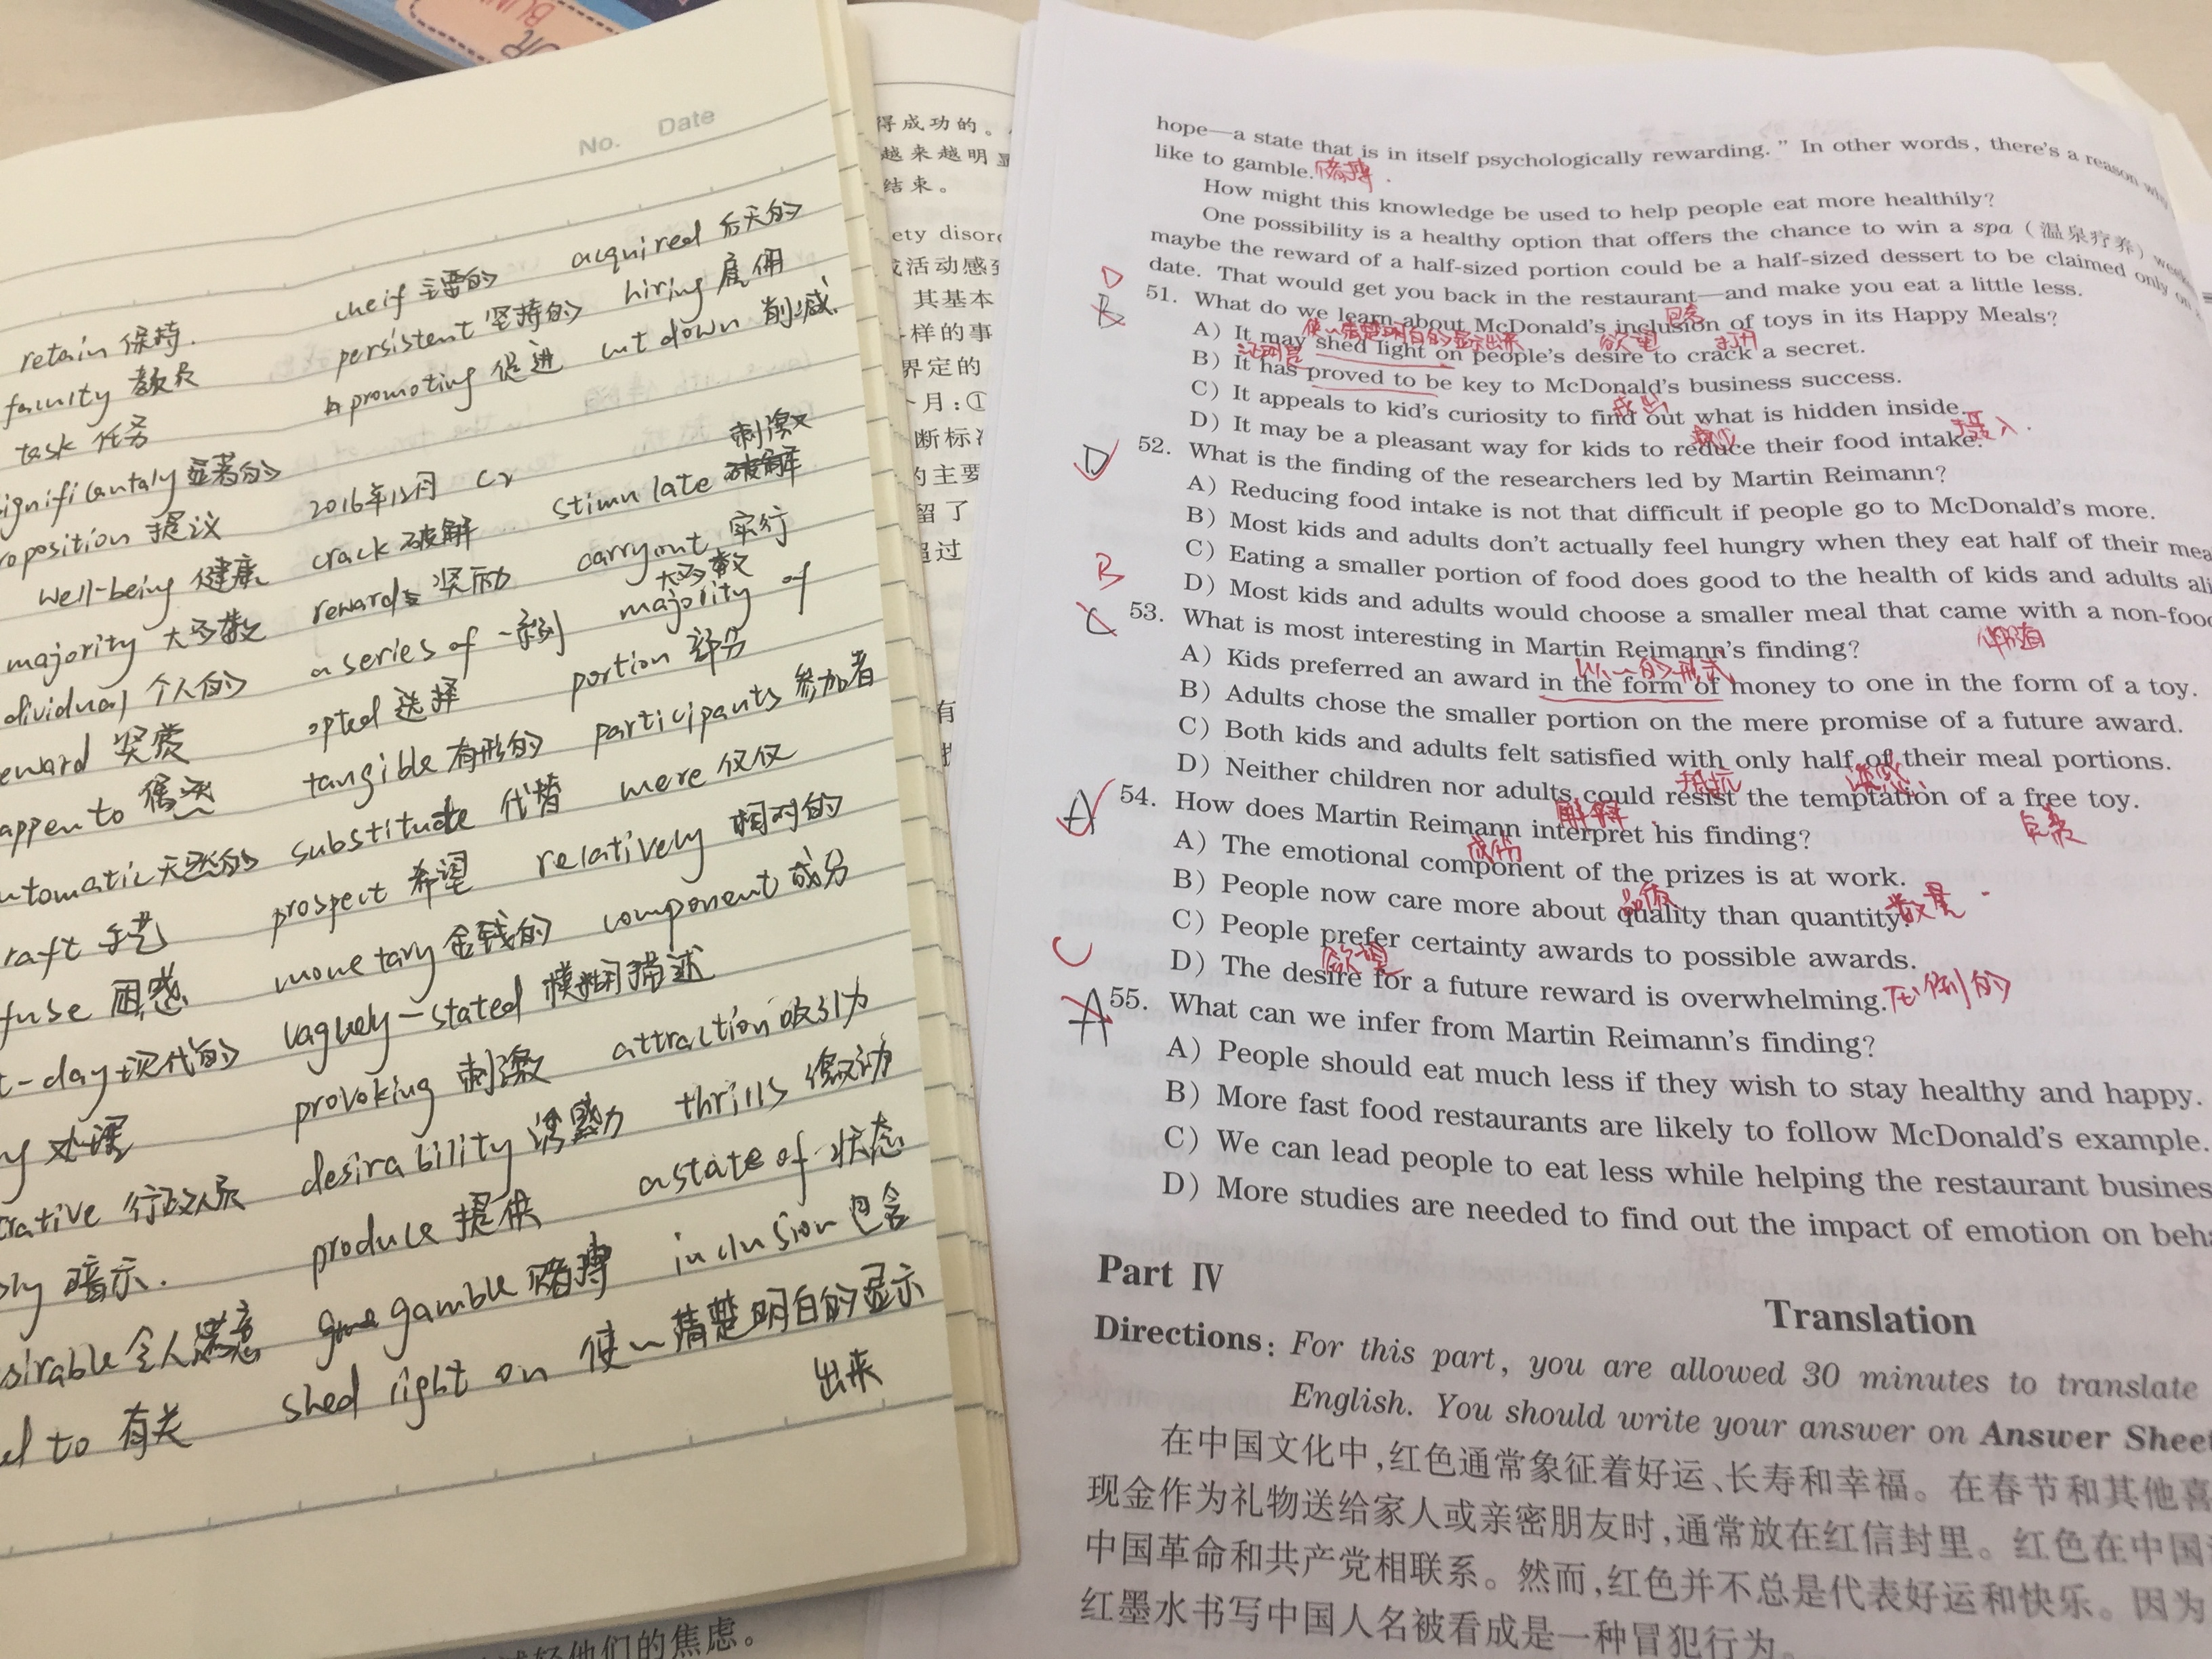 No. Date
retain 保持. cheif 主要的 acquired 后天的
faculty 教员 persistent 坚持的 hiring 雇佣
task 任务 promoting 促进 cut down 削减
significantaly 显著的
2016年12月 刺激
oposition 提议 crack 破解 stimulate 破解
well-being 健康 reward 奖励 carryout 实行
majority 大多数 a series of 一系列 majority of 大多数
dividual 个人的 opted 选择 portion 部分
eward 奖赏 tangible 有形的 participants 参加者
appen to 偶然 substitute 代替 mere 仅仅
utomatic 天然的 prospect 希望 relatively 相对的
raft 手艺 monetary 金钱的 component 成分
fuse 困惑 vaguely-stated 模糊描述
t-day 现代的 provoking 刺激 attraction 吸引力
y 处理 desirability 诱惑力 thrills 激动
rative 行政人员 produce 提供 a state of 状态
ply 暗示. gamble 赌博 inclusion 包含
sirable 令人满意 shed right on 使~清楚明白的显示
el to 有关 出来
得成功的。
越来越明显
结束。
ety disor
成活动感到
其基本
样的事
界定的
月:①
断标准
的主要
留了
超过
有
轻他们的焦虑。
hope—a state that is in itself psychologically rewarding.” In other words, there's a reason why
like to gamble. 赌博.
How might this knowledge be used to help people eat more healthily?
One possibility is a healthy option that offers the chance to win a spa (温泉疗养)
maybe the reward of a half-sized portion could be a half-sized dessert to be claimed only on
date. That would get you back in the restaurant—and make you eat a little less.
D
B 51. What do we learn about McDonald's inclusion of toys in its Happy Meals?
包含
使~清楚明白的显示出来 欲望 打开
A) It may shed light on people's desire to crack a secret.
证明是
B) It has proved to be key to McDonald's business success.
C) It appeals to kid's curiosity to find out what is hidden inside.
找出
D) It may be a pleasant way for kids to reduce their food intake.
减少 摄入.
D 52. What is the finding of the researchers led by Martin Reimann?
A) Reducing food intake is not that difficult if people go to McDonald's more.
B) Most kids and adults don't actually feel hungry when they eat half of their mea
C) Eating a smaller portion of food does good to the health of kids and adults ali
D) Most kids and adults would choose a smaller meal that came with a non-foo
B
C 53. What is most interesting in Martin Reimann's finding?
以~的形式
A) Kids preferred an award in the form of money to one in the form of a toy.
B) Adults chose the smaller portion on the mere promise of a future award.
C) Both kids and adults felt satisfied with only half of their meal portions.
抵抗 诱惑
D) Neither children nor adults could resist the temptation of a free toy.
免费
A 54. How does Martin Reimann interpret his finding?
解释
成份
A) The emotional component of the prizes is at work.
B) People now care more about quality than quantity.
品质 数量
C) People prefer certainty awards to possible awards.
欲望
D) The desire for a future reward is overwhelming. 压倒的
C
A 55. What can we infer from Martin Reimann's finding?
A) People should eat much less if they wish to stay healthy and happy.
B) More fast food restaurants are likely to follow McDonald's example.
C) We can lead people to eat less while helping the restaurant busines
D) More studies are needed to find out the impact of emotion on beha
Part Ⅳ
Translation
Directions: For this part, you are allowed 30 minutes to translate
English. You should write your answer on Answer Sheet
在中国文化中,红色通常象征着好运、长寿和幸福。在春节和其他喜
现金作为礼物送给家人或亲密朋友时,通常放在红信封里。红色在中国
中国革命和共产党相联系。然而,红色并不总是代表好运和快乐。因为
红墨水书写中国人名被看成是一种冒犯行为。